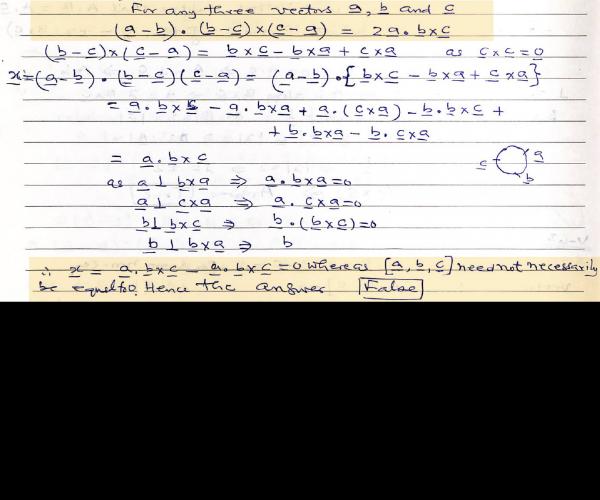 For any three vectors a, b and c
(a-b) . (b-c) x (c-a) = 2a . b x c
(b-c) x (c-a) = b x c - b x a + c x a as c x c = 0
x = (a-b) . (b-c)(c-a) = (a-b) . {b x c - b x a + c x a}
= a . b x c - a . b x a + a . (c x a) - b . b x c +
+ b . b x a - b . c x a
= a . b x c
as a ⊥ b x a ⇒ a . b x a = 0
a ⊥ c x a ⇒ a . c x a = 0
b ⊥ b x c ⇒ b . (b x c) = 0
b ⊥ b x a ⇒ b
c a b
∴ x = a . b x c - a . b x c = 0 whereas [a, b, c] need not necessarily
be equal to 0. Hence the answer False